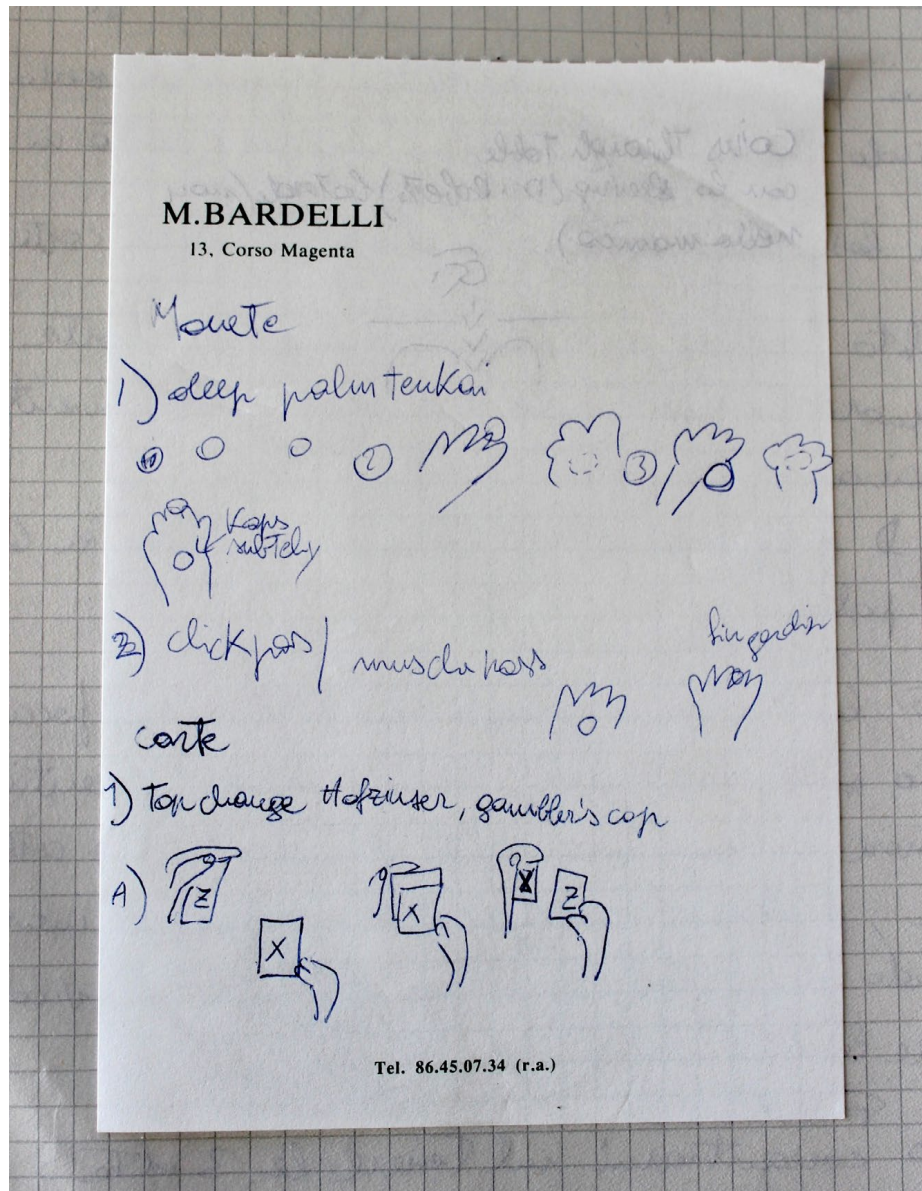 M.BARDELLI
13, Corso Magenta
Monete
1) deep palm tenkai
② ③
Kaps
subtely
2) click pass / muscle pass
carte
1) Top change Hofzinser, gambler's cop
A) Z X X X Z
Tel. 86.45.07.34 (r.a.)